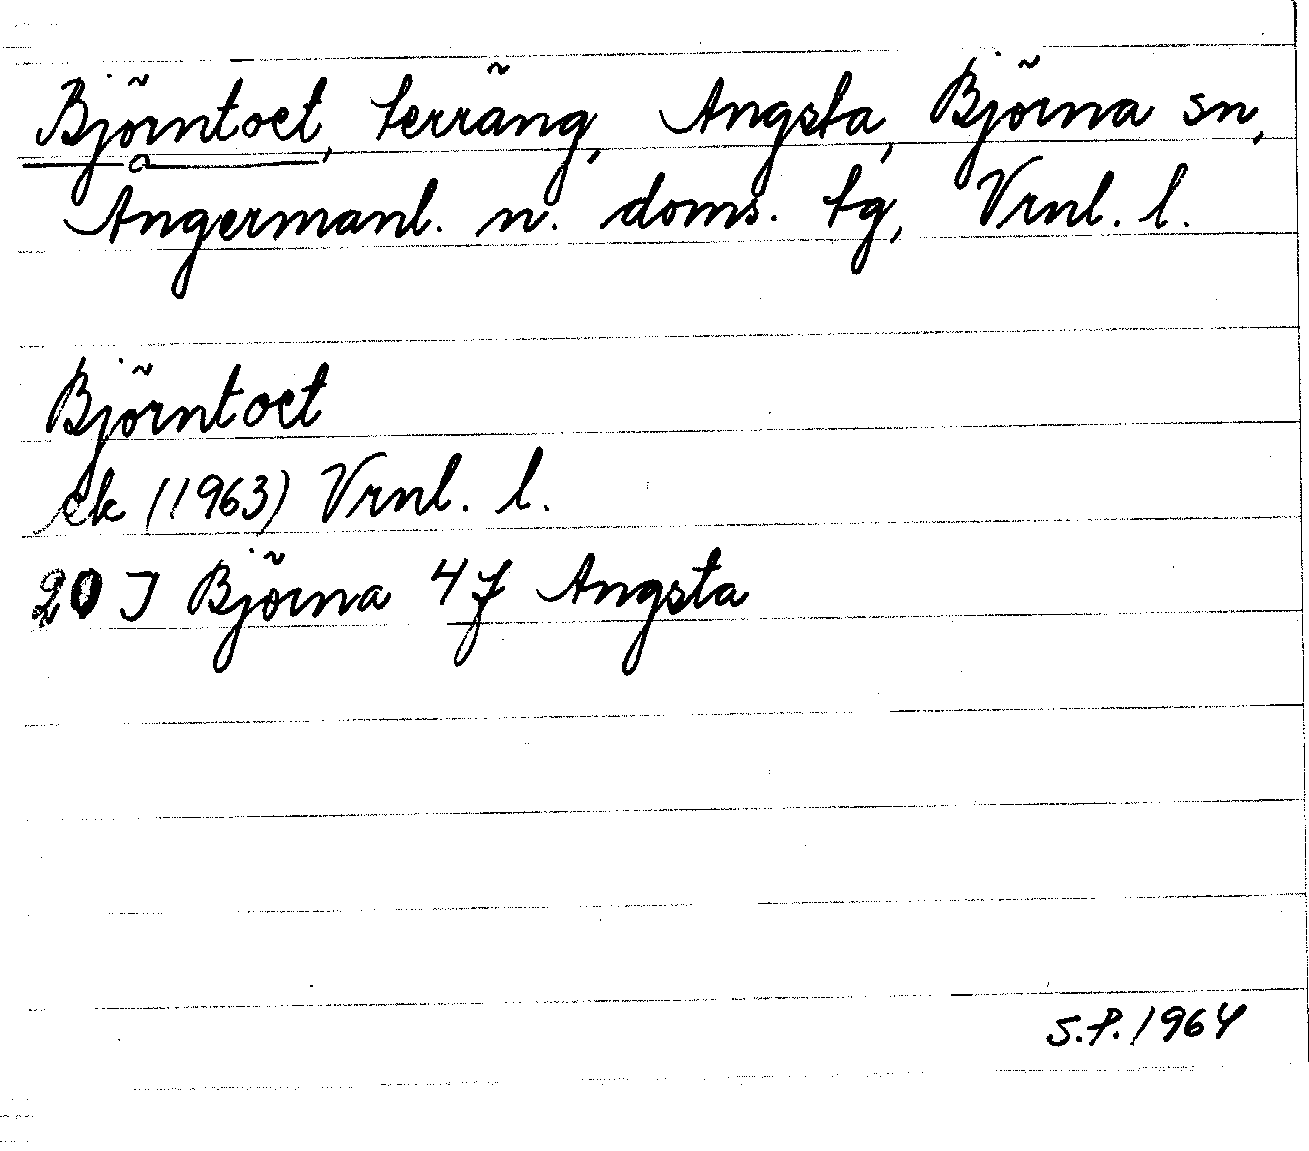 Björntoet, terräng, Angsta, Björna sn,
Ångermanl. n. doms. tg, Vrnl. l.
Björntoet
ek (1963) Vrnl. l.
20 J Björna 4 f Angsta
S.P. 1964